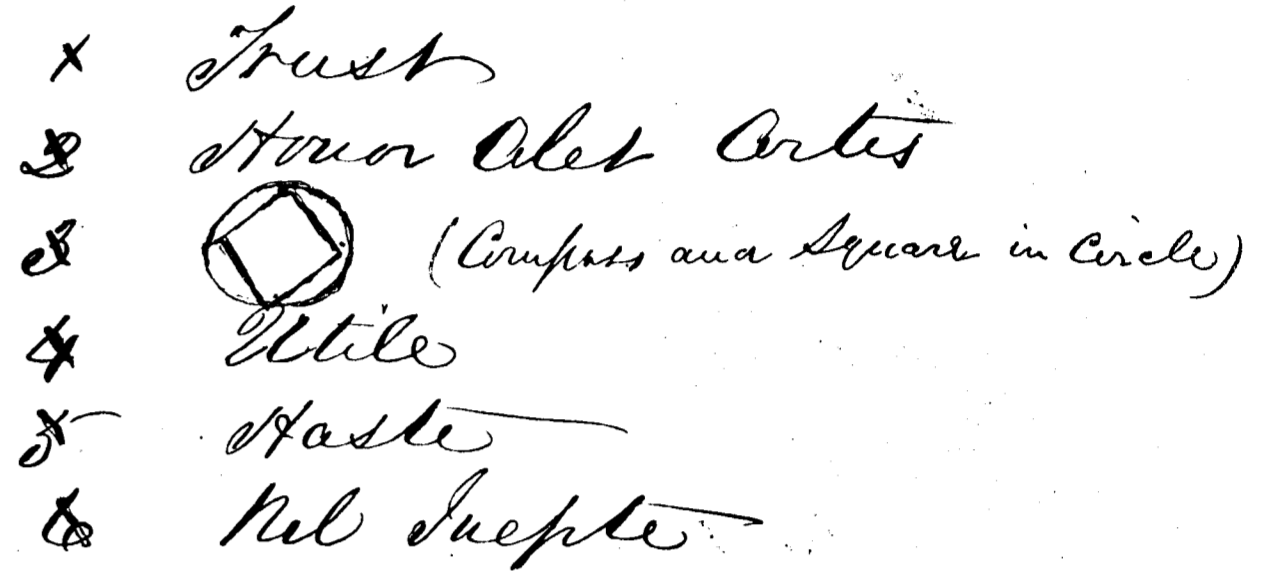 1 Trust
2 Honor Alet Artes
3 (Compass and Square in Circle)
4 Utile
5 Haste
6 Nil Inepte